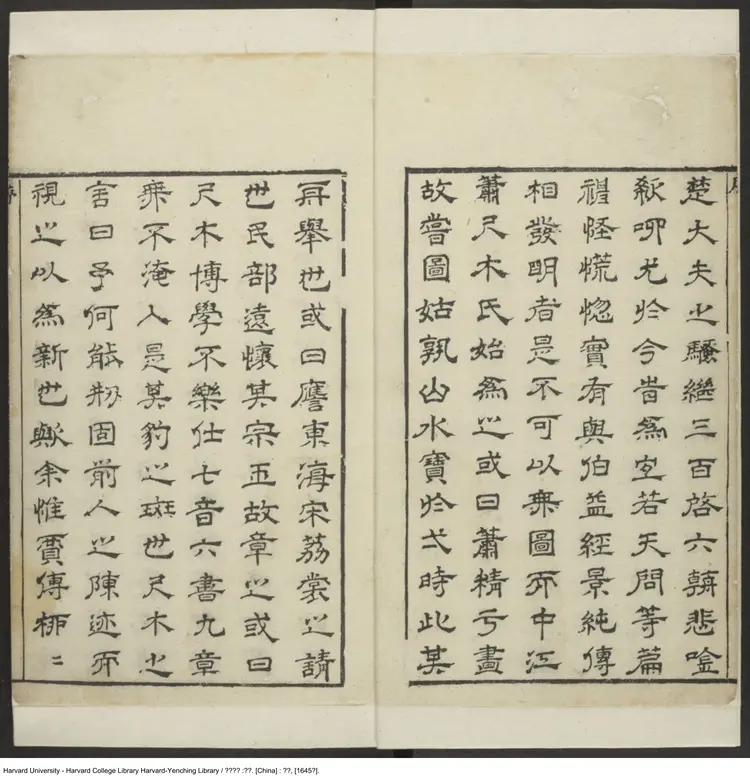 楚大夫之騷繼三百啓六朝悲唫
欷唧尤於今昔爲宜若天問等篇
怪慌惚實有與伯益經景純傳
相發明者是不可以無圖而中江
蕭尺木氏始爲之或曰蕭精亏畫
故嘗圖姑孰山水寶於弌時此其
再舉也或曰應東海宋荔裳之請
也民部遠懷其宗玉故章之或曰
尺木博學不樂仕七音六書九章
無不淹入是其豹之斑也尺木之
言曰予何能剙固前人之陳迹而
視之以爲新也歟余惟賈傅柳二
Harvard University - Harvard College Library Harvard-Yenching Library / ???? :??. [China] : ??, [1645?].